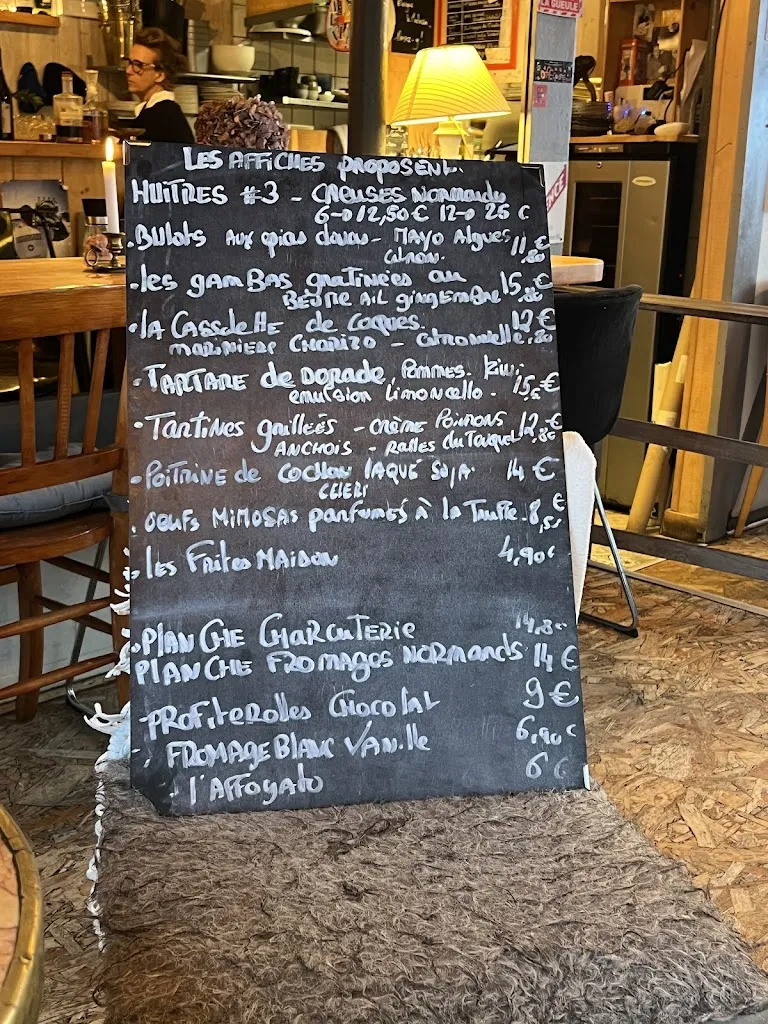 LA GUEULE
LES AFFICHES PROPOSENT.
HUÎTRES #3 - CREUSES NORMANDES
6→12,50€ 12→ 25 €
• BULOTS AUX épices douces - MAYO Algues 11,80€
citron.
• les gamBas gratinées au 15,80€
BEURRE AIL gingEMBRE
• LA CASSOLETTE de COQUES. 12,80€
MARINIERE CHORIZO - citronnelle
• TARTARE de DORADE, POMMES. Kiwi, 15,€
emulsion limoncello.
• TARTINES grillées - CRÈME POIVRONS 12,80€
ANCHOIS - Rattes du Touquet
• POITRINE de COCHON lAQUÉ SOJA. 14 €
CELERI
• OEUFS MIMOSAS parfumés à la Truffe. 8,50€
• les Frites MAISON 4,90€
• PlANCHE CHARCUTERIE 14,80
PLANCHE FROMAGES NORMANDS 14 €
- PROFiTEROLLES CHOCOLAT 9€
- FROMAGE BLANC VANille 6,90€
- l'AFFOGATO 6€